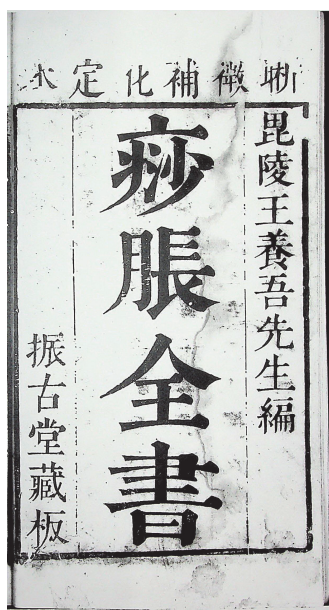 晰微補化定本
毘陵王養吾先生編
痧脹全書
振古堂藏板